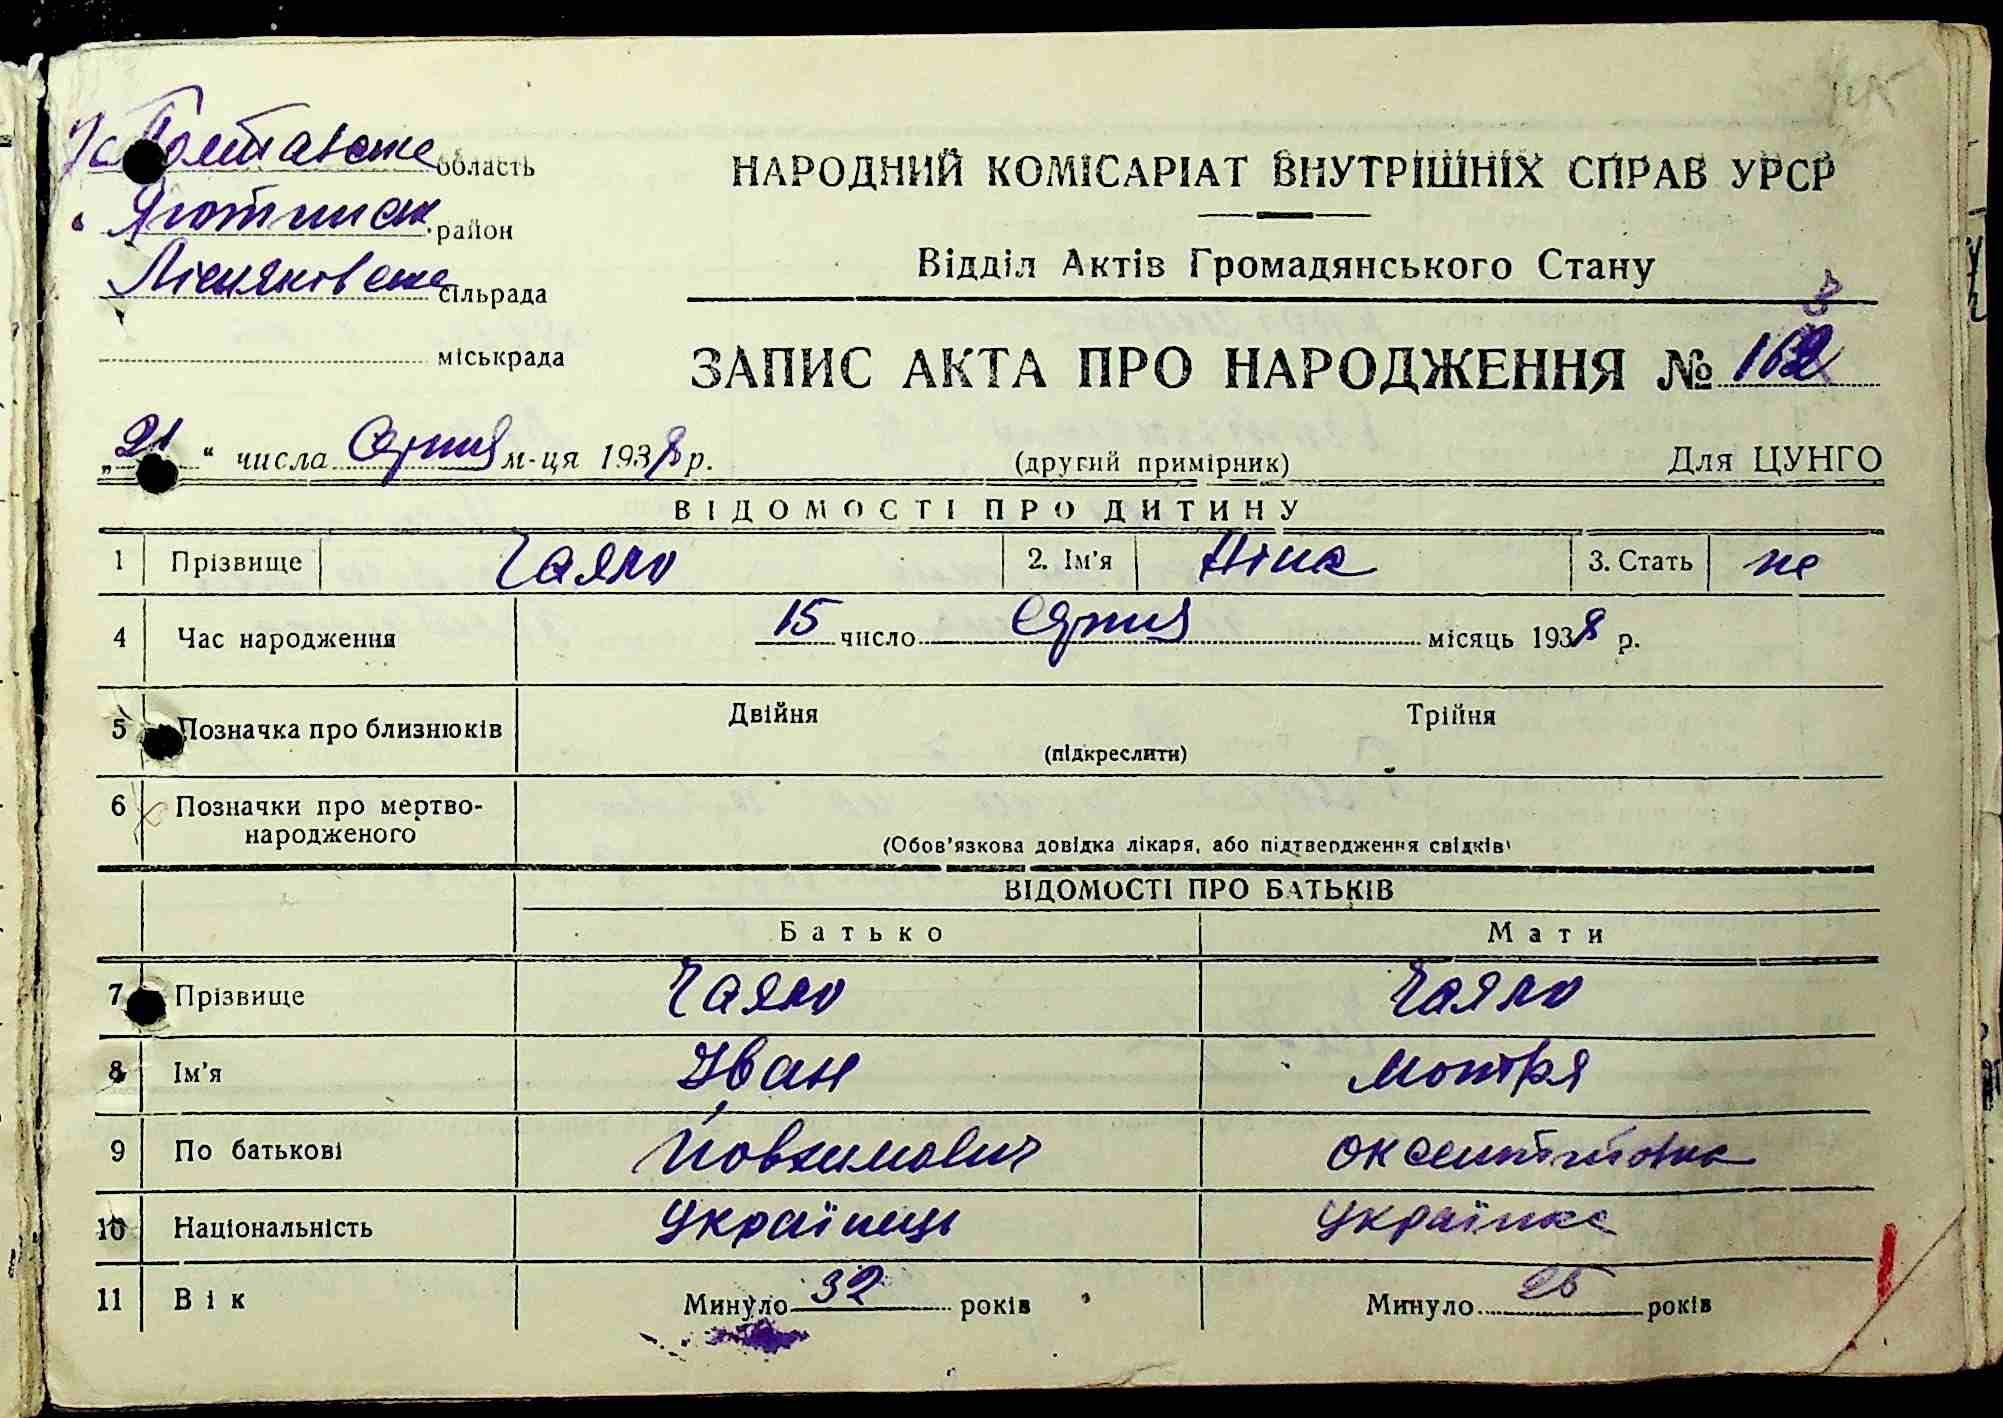 Полтавське область
Яготинськ. район
Лісняковське сільрада
міськрада
НАРОДНИЙ КОМІСАРІАТ ВНУТРІШНІХ СПРАВ УРСР
Відділ Актів Громадянського Стану
ЗАПИС АКТА ПРО НАРОДЖЕННЯ №
„21“ числа Серпня м-ця 1938 р. (другий примірник) Для ЦУНГО
ВІДОМОСТІ ПРО ДИТИНУ
1 Прізвище Чаяло 2. Ім'я Ніна 3. Стать
4 Час народження 15 число Серпня місяць 1938 р.
5 Позначка про близнюків Двійня Трійня
(підкреслити)
6 Позначки про мертво-
народженого
(Обов'язкова довідка лікаря, або підтвердження свідків)
ВІДОМОСТІ ПРО БАТЬКІВ
Батько Мати
7 Прізвище Чаяло Чаяло
8 Ім'я Іван Мотря
9 По батькові Йовхимович Оксентіївна
10 Національність Українець Українка
11 Вік Минуло 32 років Минуло років